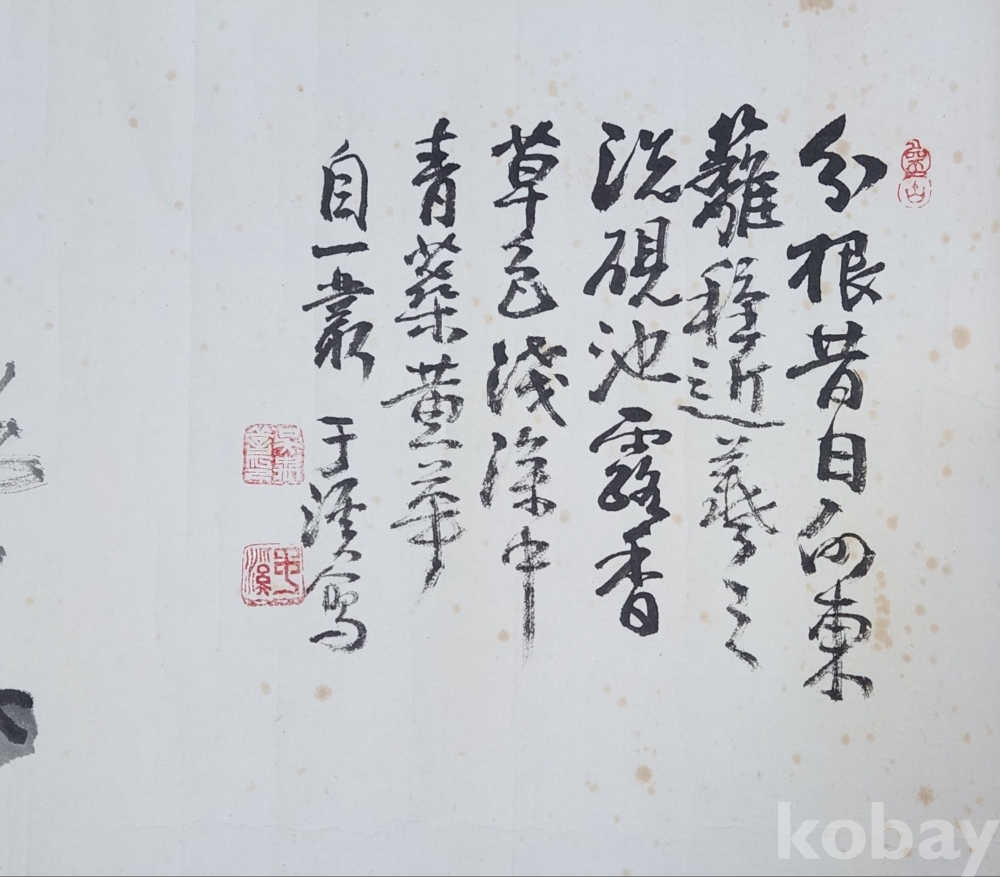 分根昔日向東
籬種近羲之
洗硯池露香
草色淺深中
青葉黃華
自一叢 于溪寫
kobay